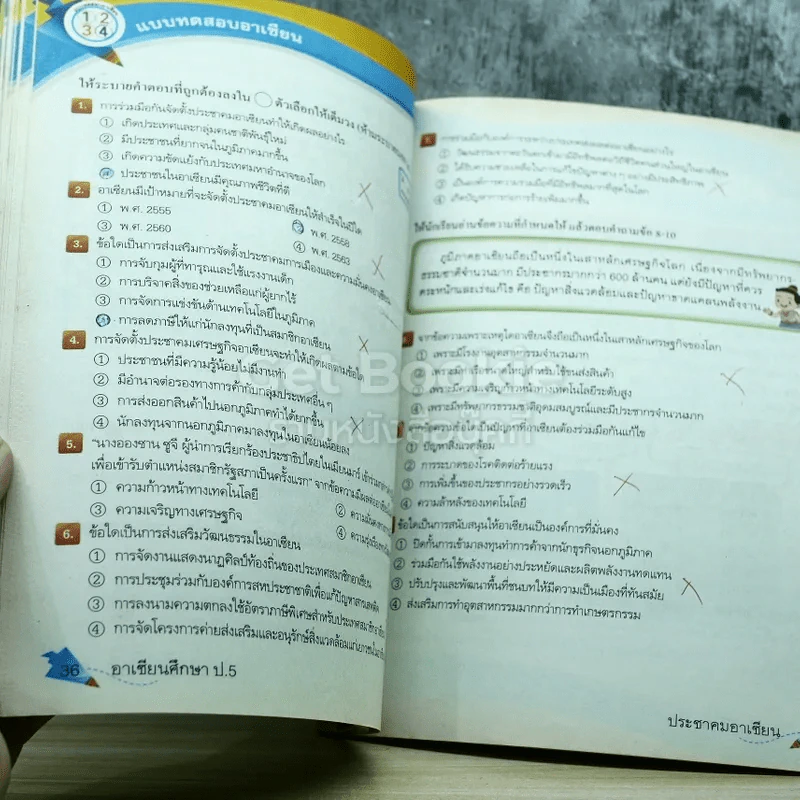 1 2
3 4
แบบทดสอบอาเซียน
ให้ระบายคำตอบที่ถูกต้องลงใน ◯ ตัวเลือกให้เต็มวง
1. การร่วมมือกันจัดตั้งประชาคมอาเซียนทำให้เกิดผลอย่างไร
① เกิดประเทศและกลุ่มคนชาติพันธุ์ใหม่
② มีประชาชนที่ยากจนในภูมิภาคมากขึ้น
③ เกิดความขัดแย้งกับประเทศมหาอำนาจของโลก
④ ประชาชนในอาเซียนมีคุณภาพชีวิตที่ดี
2. อาเซียนมีเป้าหมายที่จะจัดตั้งประชาคมอาเซียนให้สำเร็จในปีใด
① พ.ศ. 2555
② พ.ศ. 2558
③ พ.ศ. 2560
④ พ.ศ. 2563
3. ข้อใดเป็นการส่งเสริมการจัดตั้งประชาคมการเมืองและความมั่นคงอาเซียน
① การจับกุมผู้ที่ทารุณและใช้แรงงานเด็ก
② การบริจาคสิ่งของช่วยเหลือแก่ผู้ยากไร้
③ การจัดการแข่งขันด้านเทคโนโลยีในภูมิภาค
④ การลดภาษีให้แก่นักลงทุนที่เป็นสมาชิกอาเซียน
4. การจัดตั้งประชาคมเศรษฐกิจอาเซียนจะทำให้เกิดผลตามข้อใด
① ประชาชนที่มีความรู้น้อยไม่มีงานทำ
② มีอำนาจต่อรองทางการค้ากับกลุ่มประเทศอื่น ๆ
③ การส่งออกสินค้าไปนอกภูมิภาคทำได้ยากขึ้น
④ นักลงทุนจากนอกภูมิภาคมาลงทุนในอาเซียนน้อยลง
5. "นางอองซาน ซูจี ผู้นำการเรียกร้องประชาธิปไตยในเมียนมาร์
เพื่อเข้ารับตำแหน่งสมาชิกรัฐสภาเป็นครั้งแรก" จากข้อความมีผลต่ออาเซียน
① ความก้าวหน้าทางเทคโนโลยี
② ความมั่นคง
③ ความเจริญทางเศรษฐกิจ
④
6. ข้อใดเป็นการส่งเสริมวัฒนธรรมในอาเซียน
① การจัดงานแสดงนาฏศิลป์ท้องถิ่นของประเทศสมาชิกอาเซียน
② การประชุมร่วมกับองค์การสหประชาชาติเพื่อแก้ปัญหาสารเสพติด
③ การลงนามความตกลงใช้อัตราภาษีพิเศษสำหรับประเทศสมาชิกอาเซียน
④ การจัดโครงการค่ายส่งเสริมและอนุรักษ์สิ่งแวดล้อมแก่เยาวชนใน
36 อาเซียนศึกษา ป.5
② ได้รับความช่วยเหลือในการแก้ไขปัญหาต่าง ๆ อย่างมีประสิทธิภาพ
③ เป็นองค์การความร่วมมือที่มีอิทธิพลมากที่สุดในโลก
④ เกิดปัญหาการก่อการร้ายเพิ่มมากขึ้น
ให้นักเรียนอ่านข้อความที่กำหนดให้ แล้วตอบคำถามข้อ 8-10
ภูมิภาคอาเซียนถือเป็นหนึ่งในเสาหลักเศรษฐกิจโลก เนื่องจากมีทรัพยากร-
ธรรมชาติจำนวนมาก มีประชากรมากกว่า 600 ล้านคน แต่ยังมีปัญหาที่ควร
ตระหนักและเร่งแก้ไข คือ ปัญหาสิ่งแวดล้อมและปัญหาขาดแคลนพลังงาน
จากข้อความเพราะเหตุใดอาเซียนจึงถือเป็นหนึ่งในเสาหลักเศรษฐกิจของโลก
① เพราะมีโรงงานอุตสาหกรรมจำนวนมาก
② เพราะมีท่าเรือขนาดใหญ่สำหรับใช้ขนส่งสินค้า
③ เพราะมีความเจริญก้าวหน้าทางเทคโนโลยีระดับสูง
④ เพราะมีทรัพยากรธรรมชาติอุดมสมบูรณ์และมีประชากรจำนวนมาก
จากข้อความข้อใดเป็นปัญหาที่อาเซียนต้องร่วมมือกันแก้ไข
① ปัญหาสิ่งแวดล้อม
② การระบาดของโรคติดต่อร้ายแรง
③ การเพิ่มขึ้นของประชากรอย่างรวดเร็ว
④ ความล้าหลังของเทคโนโลยี
ข้อใดเป็นการสนับสนุนให้อาเซียนเป็นองค์การที่มั่นคง
① ปิดกั้นการเข้ามาลงทุนทำการค้าจากนักธุรกิจนอกภูมิภาค
② ร่วมมือกันใช้พลังงานอย่างประหยัดและผลิตพลังงานทดแทน
③ ปรับปรุงและพัฒนาพื้นที่ชนบทให้มีความเป็นเมืองที่ทันสมัย
④ ส่งเสริมการทำอุตสาหกรรมมากกว่าการทำเกษตรกรรม
ประชาคมอาเซียน